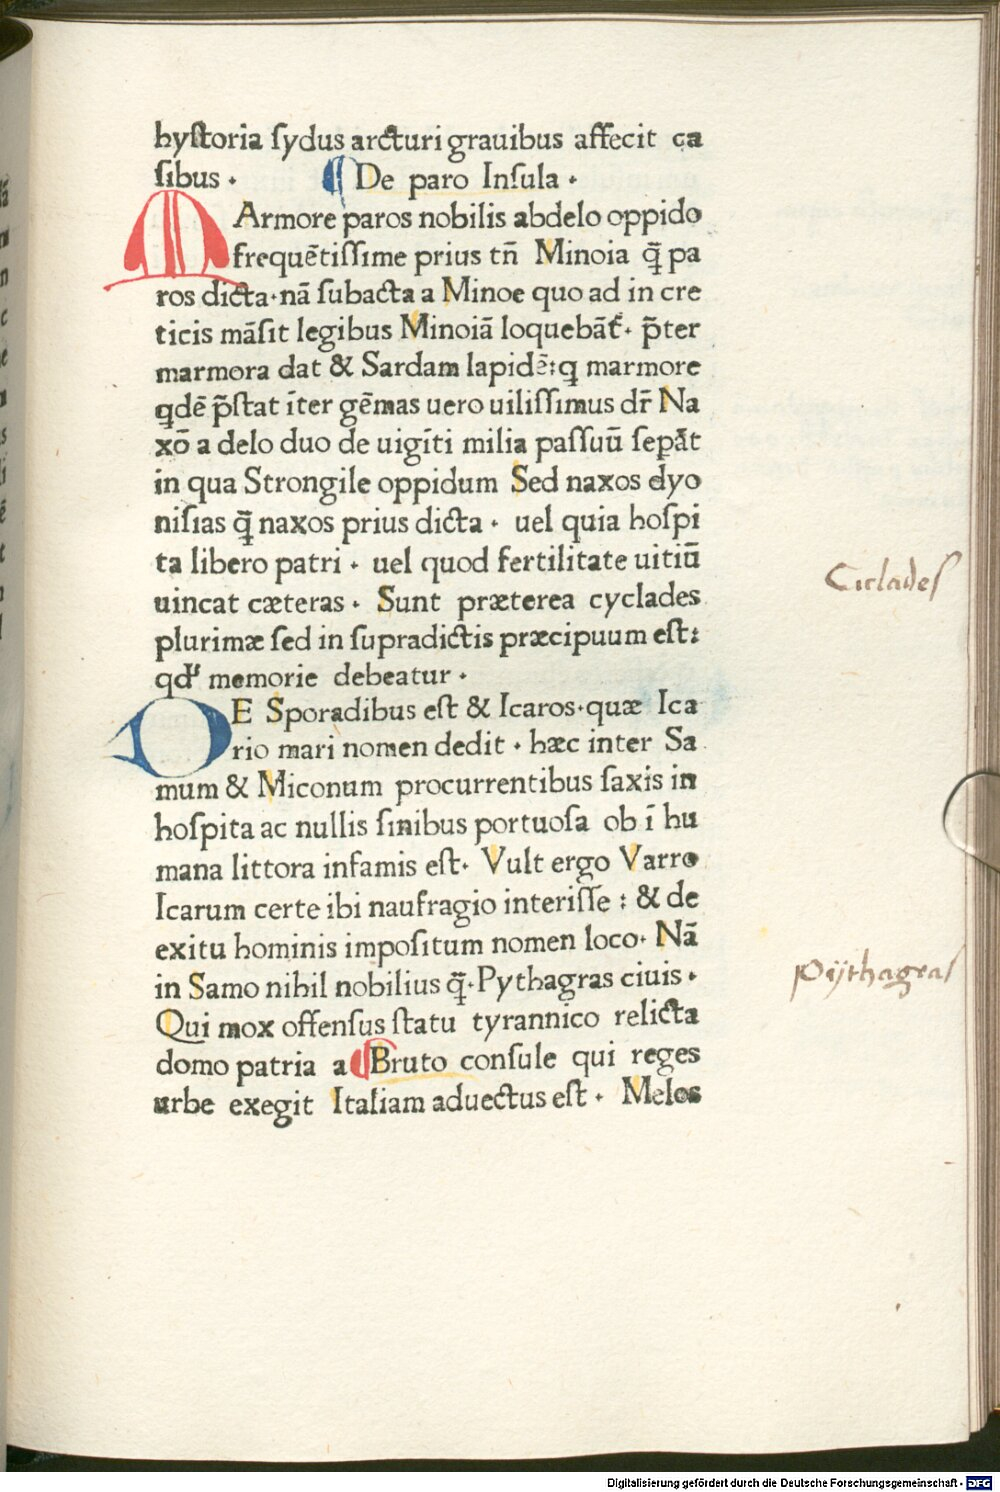 hyſtoria ſydus arcturi grauibus affecit ca
ſibus · De paro Inſula ·
MArmore paros nobilis abdelo oppido
frequētiſſime prius tñ Minoia q̄ pa
ros dicta·nā ſubacta a Minoe quo ad in cre
ticis māſit legibus Minoiā loquebāt̄· p̄ter
marmora dat & Sardam lapidē:q marmore
qdē p̄ſtat īter gēmas uero uiliſſimus dr̄ Na
xō a delo duo de uigīti milia paſſuū ſepāt
in qua Strongile oppidum Sed naxos dyo
niſias q̄ naxos prius dicta · uel quia hoſpi
ta libero patri · uel quod fertilitate uitiū
uincat cæteras · Sunt præterea cyclades
plurimæ ſed in ſupradictis præcipuum eſt:
qd' memorie debeatur ·
DE Sporadibus eſt & Icaros·quæ Ica
rio mari nomen dedit · hæc inter Sa
mum & Miconum procurrentibus ſaxis in
hoſpita ac nullis ſinibus portuoſa ob ī hu
mana littora infamis eſt· Vult ergo Varro
Icarum certe ibi naufragio interiſſe : & de
exitu hominis impoſitum nomen loco· Nā
in Samo nihil nobilius q̄·Pythagras ciuis ·
Qui mox offenſus ſtatu tyrannico relicta
domo patria a Bruto conſule qui reges
urbe exegit Italiam aduectus eſt · Melos
Ciclades
Pÿthagras
Digitalisierung gefördert durch die Deutsche Forschungsgemeinschaft - DFG